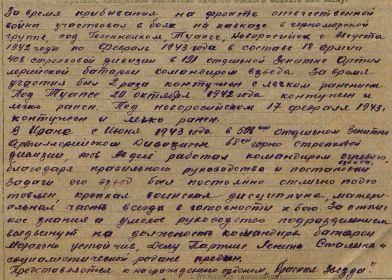 За время пребывания на фронте отечественной
войны участвовал в боях на кавказе в черноморской
группе, под Геленжиком, Туапсе, Новоросийск с Августа
1942 года по Февраль 1943 года в составе 18 армии
408 стрелковой дивизии в 121 отдельной Зенитно Артил
лерийской батареи командиром взвода. За время
участия был 2 раза контужен с легким ранением
Под Туапсе 20 октября 1942 года контужен и
легко ранен. Под новоросийском 17 февраля 1943г.
контужен и легко ранен.
В Иране с Июня 1943 года в отдельном Зенитно
Артиллерийском Дивизионе 68ой горно стрелковой
дивизии, тов работал командиром огневого
взвода,
благодаря правильного руководства и постановки
Задачи его взвод был постоянно отлично подго
товлен, крепкая воинская дисциплина, матери
альная часть всегда в готовности к бою. За отлич
ное знание и умелое руководство подразделением
выдвинут на должность командира батареи
Морально устойчив, Делу Партии Ленина Сталина и
социалистической родине предан
Представляется к награждению орденом "Красная Звезда"